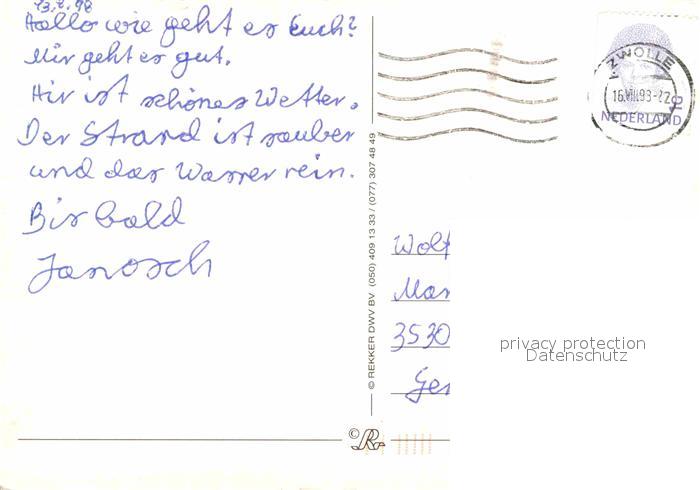 13.7.98
Hallo wie geht es Euch?
Mir geht es gut.
Hir ist schönes Wetter.
Der Strand ist sauber
und das Wasser rein.
Bis bald
Janosch
© REKKER DWV BV (050) 409 13 33 / (077) 307 48 49
ZWOLLE
16.VII.98-
NEDERLAND
Wolf
Mar
3530
Ger
privacy protection
Datenschutz
©R